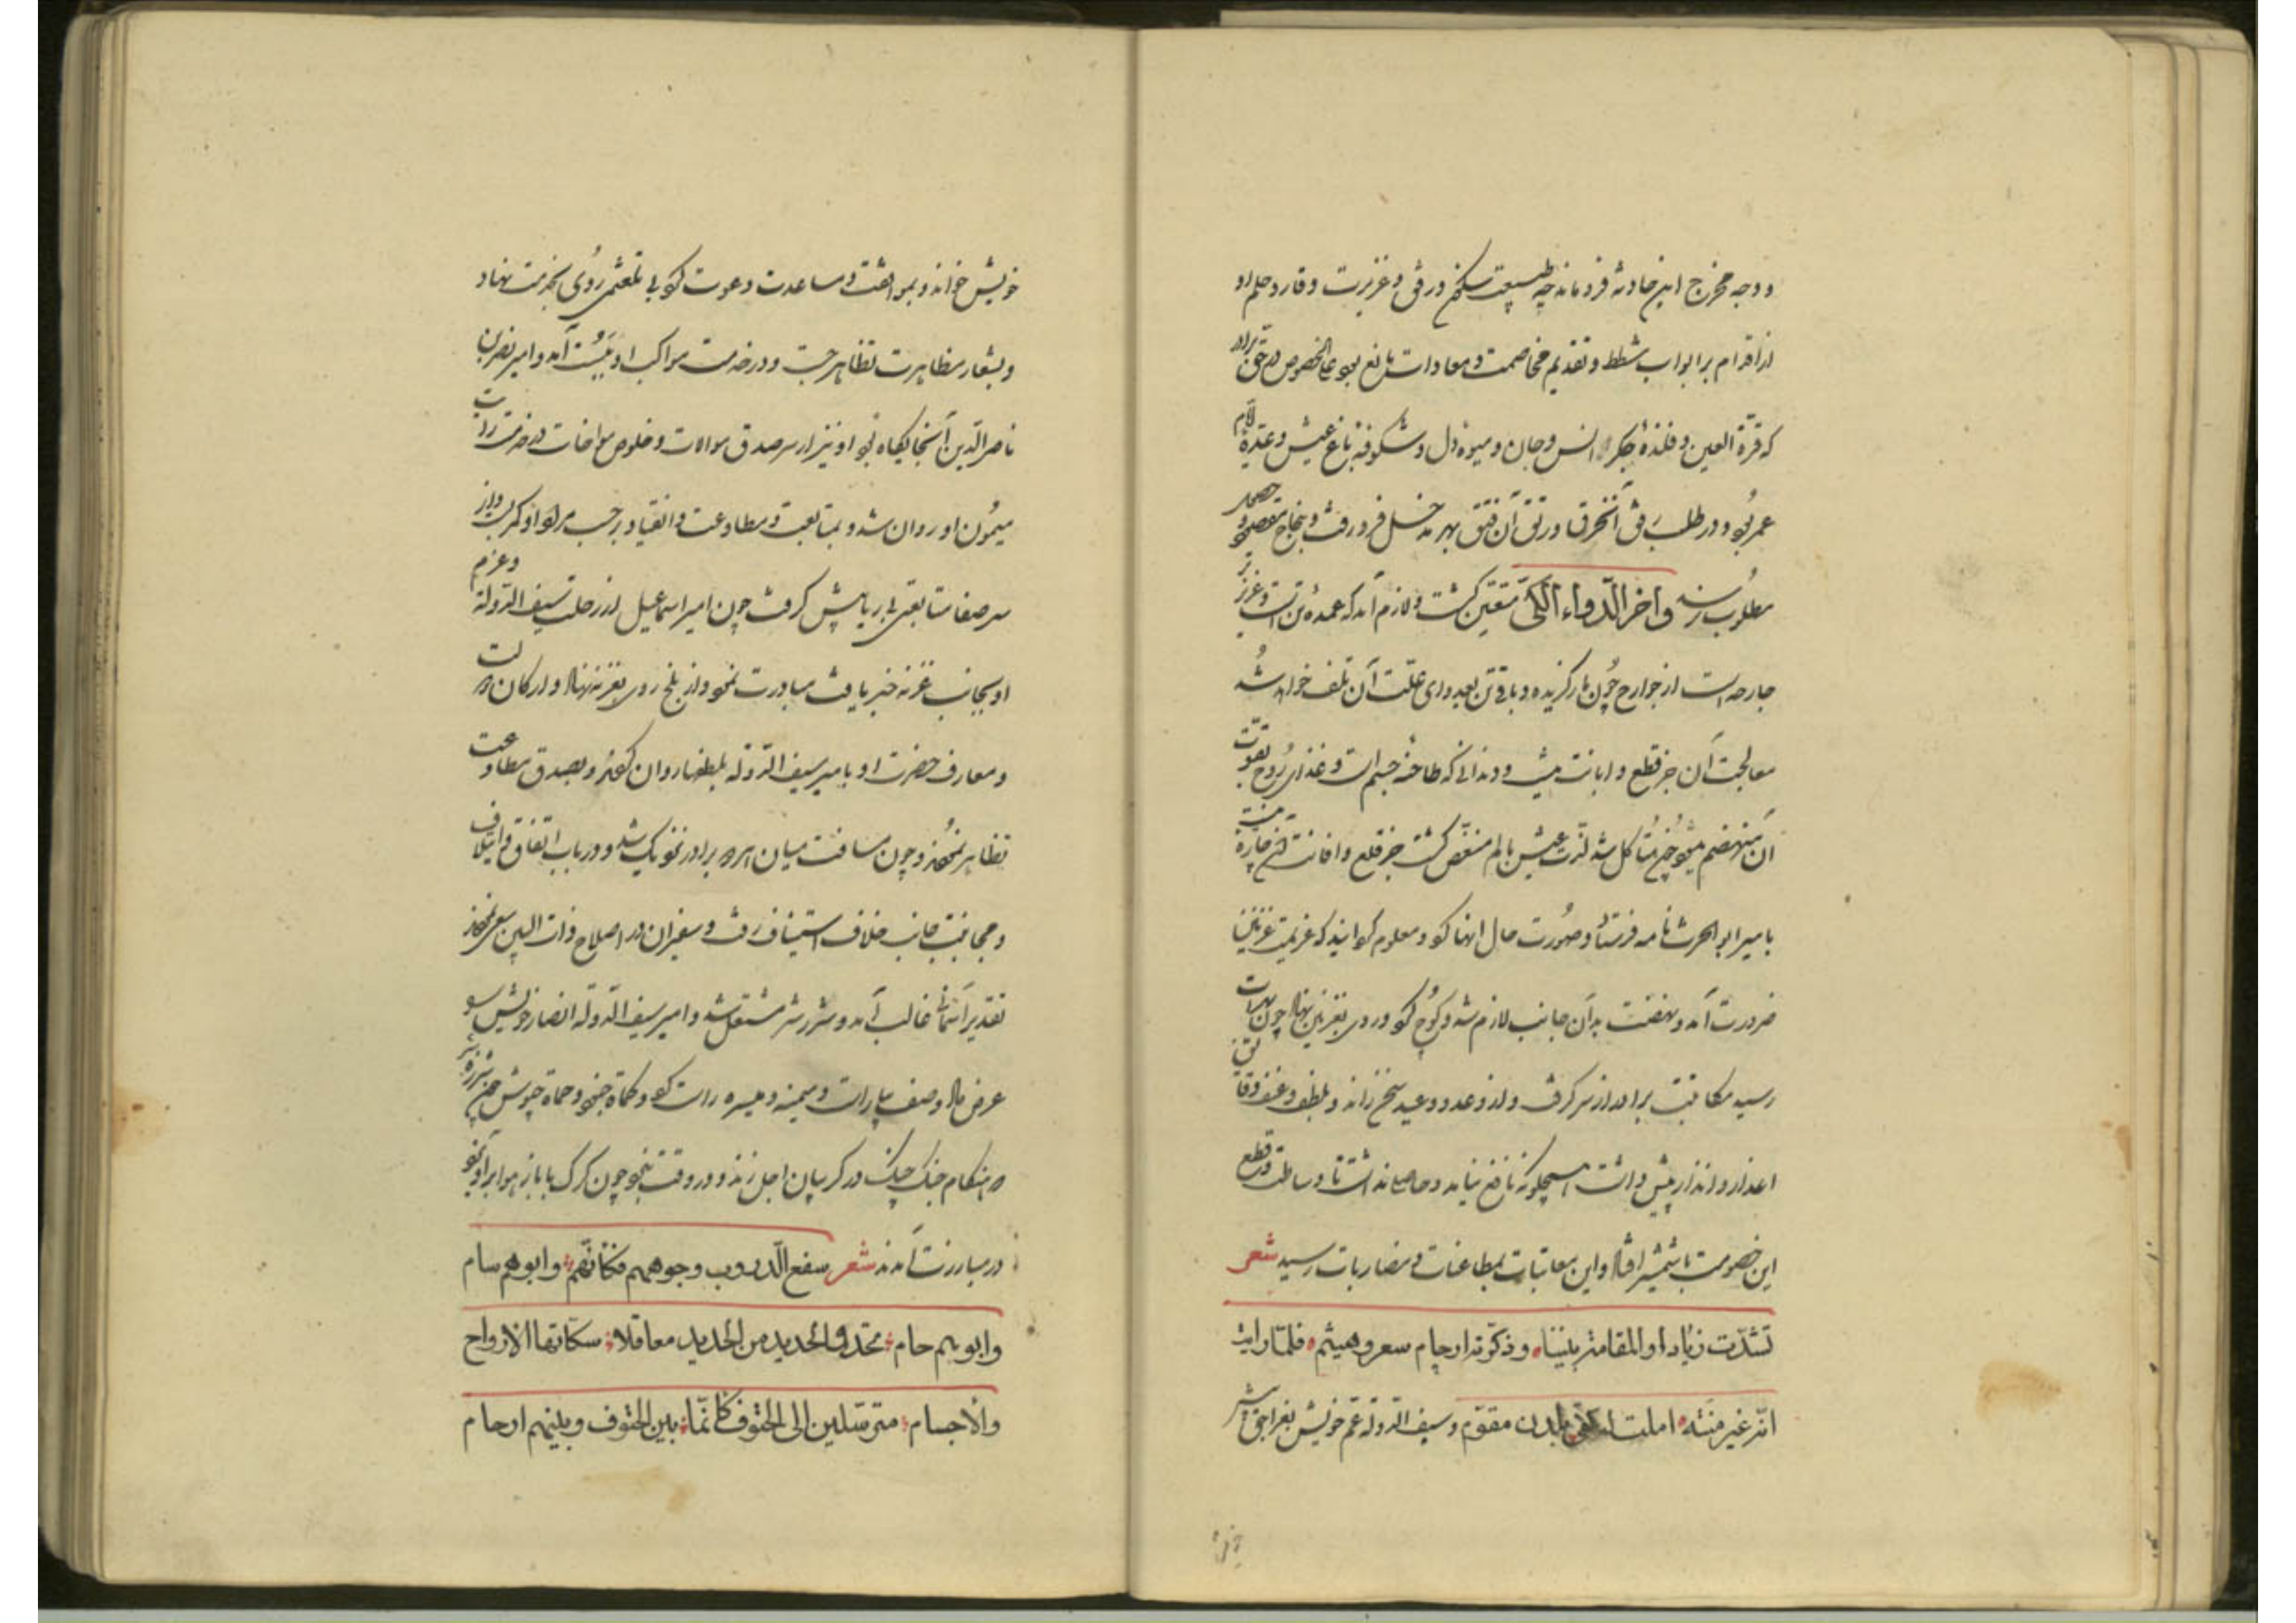 و وجه مخرج این حادثه فرو ماند چه طبیعت سکنج در فی و غریزت وقار و حلم او
از اقدام بر ابواب شطط و تقدیم مخاصمت و معادات مانع بود علی الخصوص در حق برادر
که قرة العین و فلذهٔ جگر و انس و جان و میوهٔ دل و شکوفهٔ باغ عیش و عدّهٔ ایام
عمر بود و در طلب رفی آن خرق و رتق آن فتق بهر مدخل فرو رفت و بنجاح مقصود و حصول
مطلوب نرسید و اخر الدّواء الکیّ متعیّن گشت و لازم آمد که عمدهٔ تن است و عزیزتر
جارحه است از جوارح چون مار گزیده و باقی تن بعدوای علّت آن تلف خواهد شد
معالجت آن جز قطع و ابانت نیست و دندانی که طاحنهٔ جسم است و غذای روح بقوت
آن منهضم میشود چون متأکل شد لذّت عیش بالم منغّص گشت جز قلع و افانت هیچ چاره نیست
بامیر ابو الحرث نامه فرستاد و صورت حال انها کرد و معلوم گردانید که عزیمت غزنین
ضرورت آمد و نهضت بدان جانب لازم شد و کوچ کرد و روی بغزنین نهاد چون بهرات
رسید مکاتبت برادر از سر گرفت و از وعد و وعید سخن راند و بلطف و عنف و رفق
اعذار و انذار پیش داشت هیچگونه نافع نیامد و حاصلی نداشت تا وساطت و قطع
این خصومت با شمشیر افتاد و این معاتبات بمطاعنات و مضاربات رسید شعر
نشدت زیادا و المقامة بیننا و ذکّرته ارحام سعر و هیثم فلمّا رایت
انّه غیر منته املت له کفّی بلدن مقوّم و سیف الدوله عمّ خویش بغراجق را بر
خویش خواند و بموافقت و مساعدت دعوت کرد بی تلعثمی روی بخدمت نهاد
و بشعار مظاهرت تظاهر جست و در خدمت مواکب او ببست آمد و امیر نصر بن
ناصر الدین آنجایگاه بود او نیز از سر صدق موالات و خلوص مواخات در خدمت رایت
میمون او روان شد و بمتابعت و مطاوعت و انقیاد بر حسب مراد او کمر بست و از
سر صفا متابعتی بی ریا پیش گرفت چون امیر اسماعیل از رحلت سیف الدوله و عزم
او بجانب غزنه خبر یافت مبادرت نمود و از بلخ روی بغزنه نهاد و ارکان دولت
و معارف حضرت او بامیر سیف الدوله ملطفها روان کردند و بصدق مطاوعت
تظاهر نمودند و چون مسافت میان هر دو برادر نزدیک شد و در باب اتفاق و ایتلاف
و مجانبت جانب خلاف استیناف رفت و سفیران در اصلاح ذات البین سعی نمودند
تقدیر آسمانی غالب آمد و شرر شر مشتعل شد و امیر سیف الدوله انصار خویش را
عرض داد و صف بیاراست و میمنه و میسره راست کرد و کماة جنود و حماة جیوش چون شرزه شیر
در هنگام جنگ چنگ در گریبان اجل زنند و در وقت نبرد چون کرک با باز هوا برآویزند
در مبارزت آمدند شعر سفع الدّروب وجوههم فکأنّهم و ابوهم سام
و ابوهم حام تخذوا الحدید من الحدید معاقلا سکّانها الارواح
والأجسام مترسّلین الی الحتوف کانّما بین الحتوف و بینهم ارحام